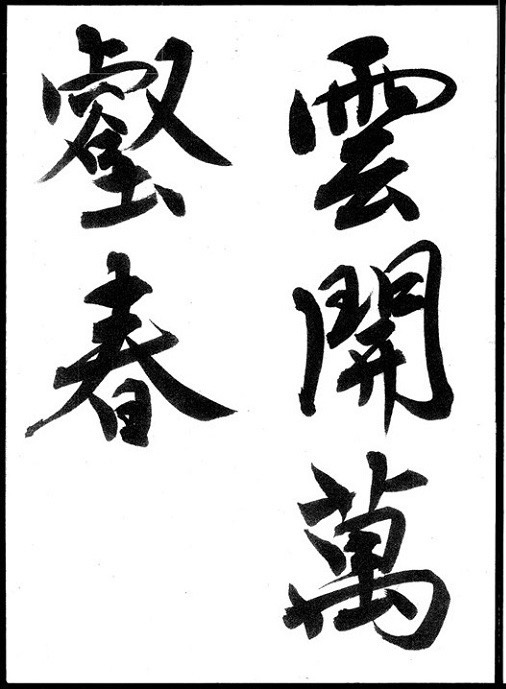 雲開萬
壑春